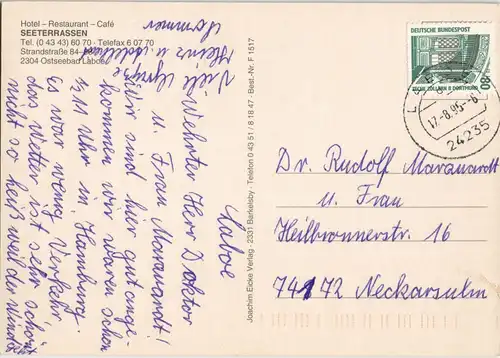 Hotel – Restaurant – Café
SEETERRASSEN
Tel. (0 43 43) 60 70 · Telefax 6 07 70
Strandstraße 84–
2304 Ostseebad Laboe
Laboe
Wehrter Herr Doktor
u. Frau Marquardt!
Wir sind hier gut ange-
kommen wir waren schon
½ 11 Uhr in Hamburg
Es war wenig Verkehr
das Wetter ist sehr schön
nicht so heiß weil der Wind
Viele Grüße
Heinz u.
Sommer
Joachim Eicke Verlag · 2331 Barkelsby · Telefon 0 43 51 / 8 18 47 · Best.-Nr. F 1517
DEUTSCHE BUNDESPOST
80
ZECHE ZOLLERN II DORTMUND
17.-8.95-
24235
Dr. Rudolf Marquardt
u. Frau
Heilbronnerstr. 16
74172 Neckarsulm